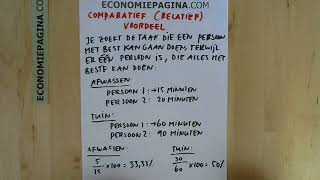 ECONOMIEPAGINA.COM
COMPARATIEF (RELATIEF)
VOORDEEL
JE ZOEKT DE TAAK DIE EEN PERSOON
HET BEST KAN GAAN DOEN, TERWIJL
ER ÉÉN PERSOON IS, DIE ALLES HET
BESTE KAN DOEN:
AFWASSEN:
PERSOON 1: →15 MINUTEN
PERSOON 2: 20 MINUTEN
TUIN:
PERSOON 1: →60 MINUTEN
PERSOON 2: 90 MINUTEN
AFWASSEN: TUIN:
5/15 x100 = 33,3% 30/60 x100 = 50%
ECONOMIEPAGINA.COM